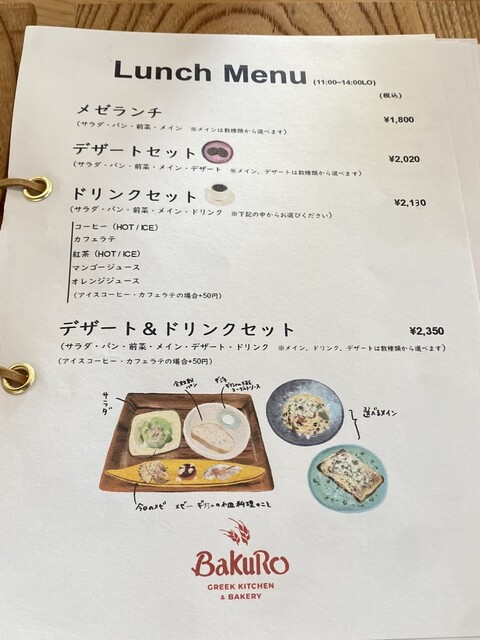 Lunch Menu (11:00~14:00LO)
(税込)
メゼランチ ¥1,800
(サラダ・パン・前菜・メイン ※メインは数種類から選べます)
デザートセット ¥2,020
(サラダ・パン・前菜・メイン・デザート ※メイン、デザートは数種類から選べます)
ドリンクセット ¥2,130
(サラダ・パン・前菜・メイン・ドリンク ※下記の中からお選びください)
コーヒー (HOT / ICE)
カフェラテ
紅茶 (HOT / ICE)
マンゴージュース
オレンジジュース
(アイスコーヒー・カフェラテの場合+50円)
デザート＆ドリンクセット ¥2,350
(サラダ・パン・前菜・メイン・デザート・ドリンク ※メイン、ドリンク、デザートは数種類から選べます)
(アイスコーヒー・カフェラテの場合+50円)
サラダ
パン
選べるメイン
今日のメゼ
BakuRo
GREEK KITCHEN
& BAKERY